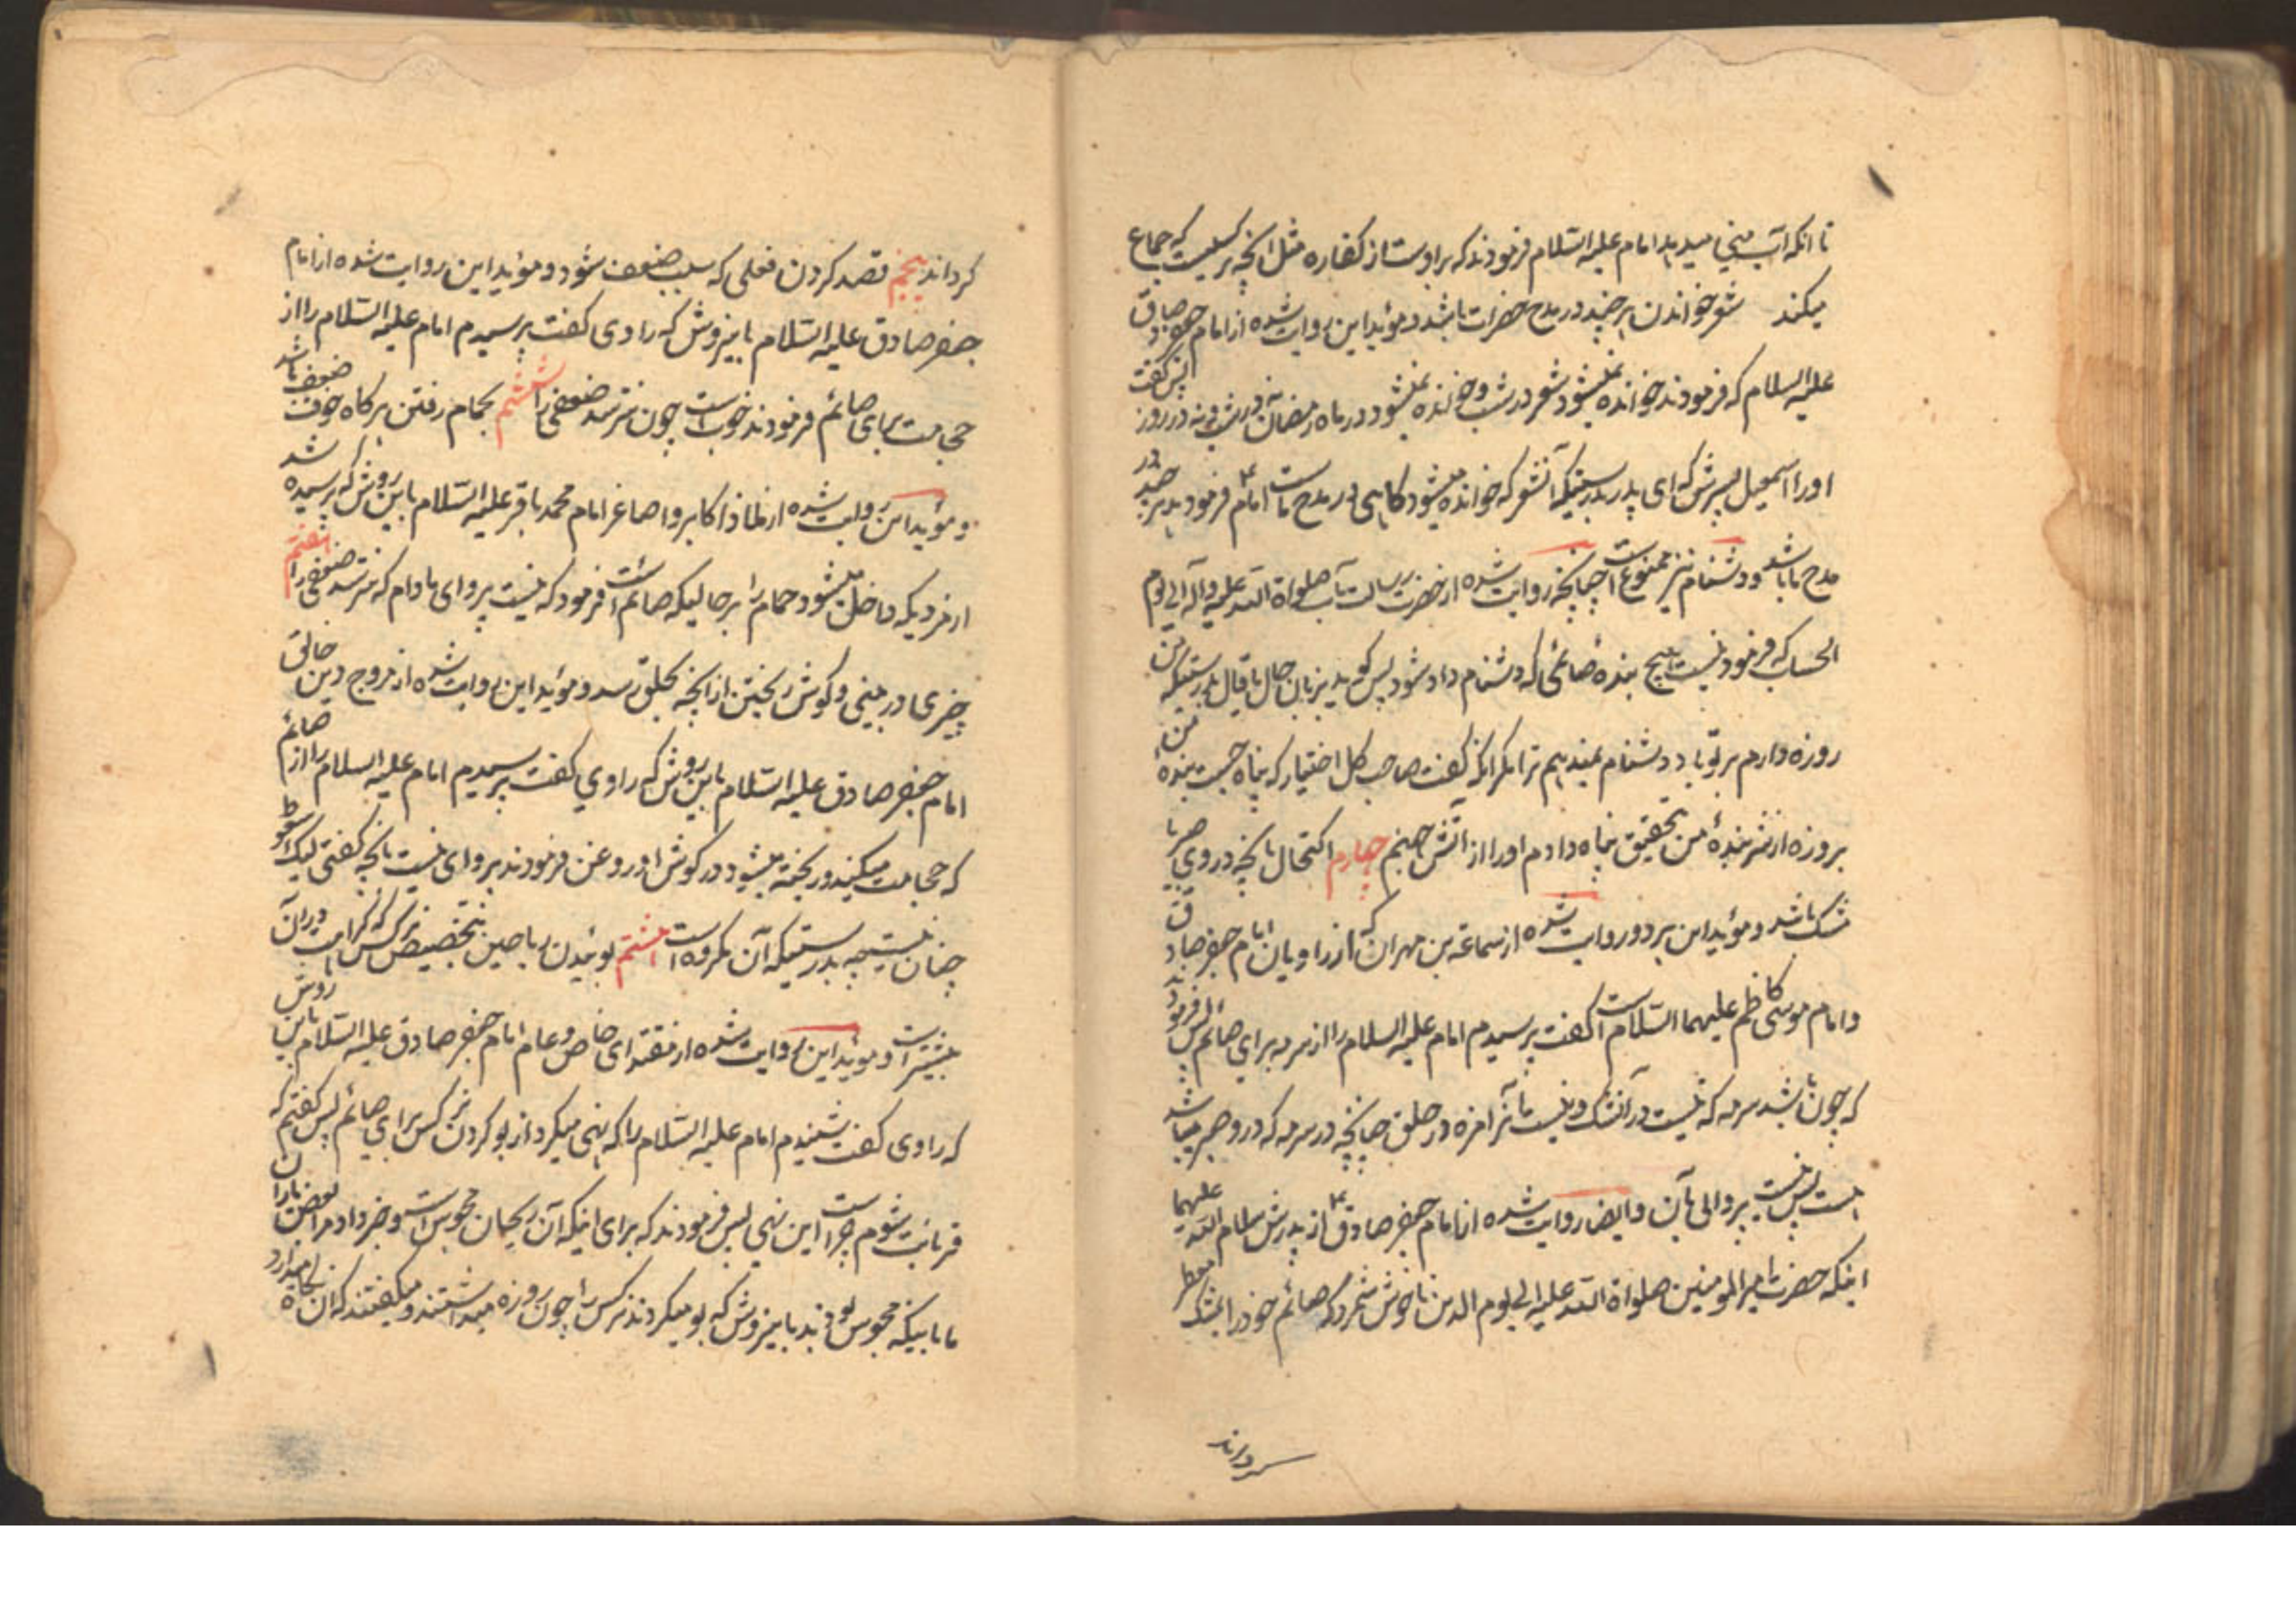 تا انکه آب منی میدیدا امام علیه السّلام فرمودند که بر اوست از کفاره مثل انچه بر کسیست که جماع
میکند شعر خواندن هرچند در مدح حضرات باشد و مؤید این روایت شده از امام جعفر صادق
علیه السلام که فرمودند خوانده نمیشود شعر در شب و خوانده نمیشود در ماه رمضان نه در شب و نه در روز پس گفت
او را اسمعیل پسرش که ای پدر بدرستیکه آن شعر که خوانده میشود کاهی در مدح ماست امام ع فرمود هرچند در
مدح ما باشد و دشنام نیز ممنوع است چنانچه روایت شده از حضرت رسالت مآب صلواة اللّه علیه و آله الی یوم
الحساب که فرمود نیست هیچ بنده صائمی که دشنام داده شود پس کوید بزبان حال یا قال بدرستیکه من
روزه دارم بر تو باد دشنام نمیدهم ترا مکر انکه کفت صاحب کل اختیار که پناه جست بنده من
بروزه از شر بنده من بتحقیق پناه دادم او را از آتش جهنم چهارم اکتحال بانچه در وی صبر یا
مشک باشد و مؤید این هر دو روایت شده از سماعة بن مهران که از راویان امام جعفر صادق
و امام موسی کاظم علیهما السّلام است کفت پرسیدم امام علیه السلام را از سرمه برای صائم پس فرمودند
که چون باشد سرمه که نیست در آن مشک و نیست مآنرا مزه در حلق چنانچه در سرمه که در و صبر میباشد
هست پس نیست پروائی بآن و ایضا روایت شده از امام جعفر صادق ع از پدرش سلام اللّه علیهما
اینکه حضرت امیر المومنین صلواة اللّه علیه الی یوم الدین ناخوش شمرد که صائم خود را بمشک معطر
سر و راند
کرداند پنجم قصد کردن فعلی که سبب ضعف شود و مؤید این روایت شده از امام
جعفر صادق علیه السّلام باینروش که راوی کفت پرسیدم امام علیه السّلام را از
حجامت برای صائم فرمودند خوب است چون نترسد ضعفی را ششم بحمام رفتن هر کاه خوف ضعف باشد
و مؤید این روایت شده از ملاذ اکابر و اصاغر امام محمد باقر علیه السّلام باین روش که پرسیده شد
از مردیکه داخل میشود حمام را بر حالیکه صائم است فرمود که نیست پروای مادام که نترسد ضعفی را هفتم
چیزی در بینی و کوش ریختن از آنچه بحلق رسد و مؤید این روایت شده از مروج دین خالق
امام جعفر صادق علیه السّلام باین روش که راوی کفت پرسیدم امام علیه السلام را از صائم
که حجامت میکند و ریخته میشود در کوش او روغن فرمودند پروای نیست بانچه کفتی لیک سعوط
چنان نیست چه بدرستیکه آن مکروه است هشتم بوئیدن ریاحین بتخصیص نرکس که کراهت در آن
بیشتر است و موید این روایت شده از مقتدای خاص و عام امام جعفر صادق علیه السّلام باین روش
که راوی کفت شنیدم امام علیه السّلام را که نهی میکرد از بو کردن نرکس برای صائم پس کفتم که
قربانت شوم چراست این نهی پس فرمودند که برای اینکه آن ریحان مجوس است و خبر داد مرا بعض یاران
ما باینکه مجوس بودند باینروش که بو میکردند نرکس را چون روزه میداشتند و میکفتند که آن نکاه میدارد